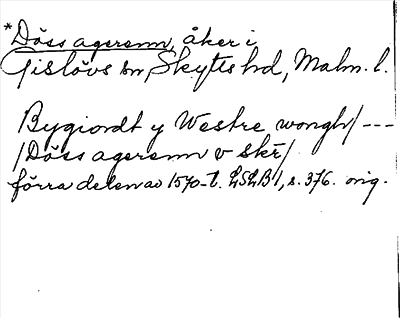 *Döss agerenn, åker i
Gislövs sn, Skytts hd, Malm. l.
Bygiordt y Westre wongh/---
/Döss agerenn v skr/
förra delen av 1570-t. LSLB 1, s. 376. orig.